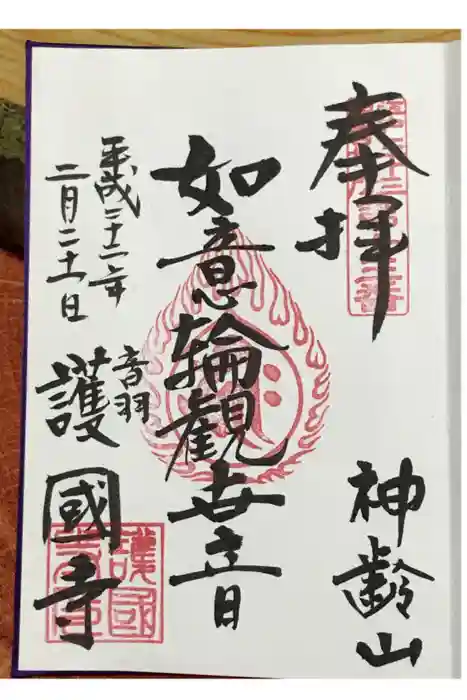 奉拝
神齢山
如意輪観世音
平成三十一年
二月二十一日
音羽
護國寺
護國